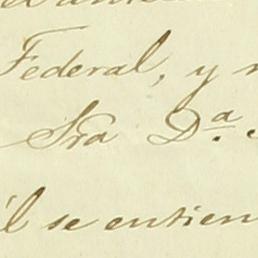 Federal, y
Sra D.ª
il se entien